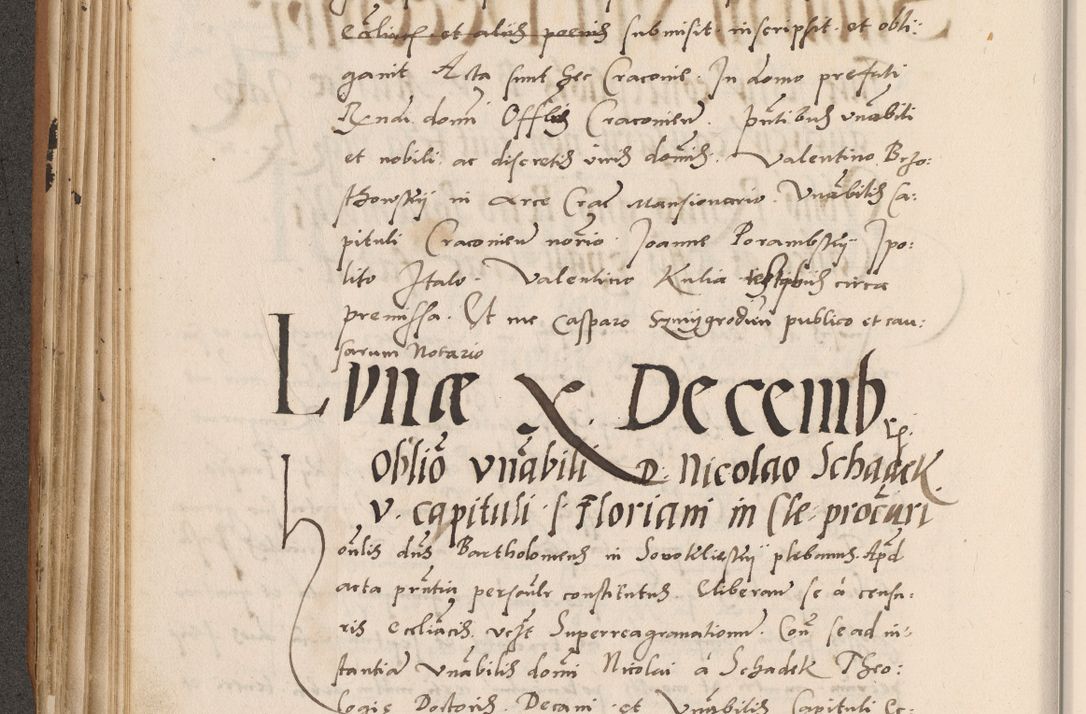 Eccliasticis et aliis poenis submisit inscripsit et obli:
gauit Acta sunt hec Cracovie. In domo prefati
Rxndi domi Officialis Cracovien. Pntibus vnabili
et nobili ac discretis viris domis. Valentino Brzo:
sthowskij in arce Crac Mansionario. Vnabilis Ca:
pituli Cracovien norio Joanne Porambskij Ipo:
lito Italo. Valentino Kulia testibus circa
premissa. Et me Casparo Szmijgrodien publico et cau:
sarum Notario
Lvnæ X. Decemb
Oblio vnabili D. Nicolao Schadek
v. capituli S. Floriani in Cle. procuri
Honlis dns Bartholomeus in plebanus. Apd
acta pntia personlr constitutus. Eliberan se á censu:
ris eccliacis. vcst Superreagrauationum. Con se ad in:
stantiam vnabilis domi Nicolai á Schadek Theo:
logie Doctoris. Decani et Vnabilis Capituli Ec: